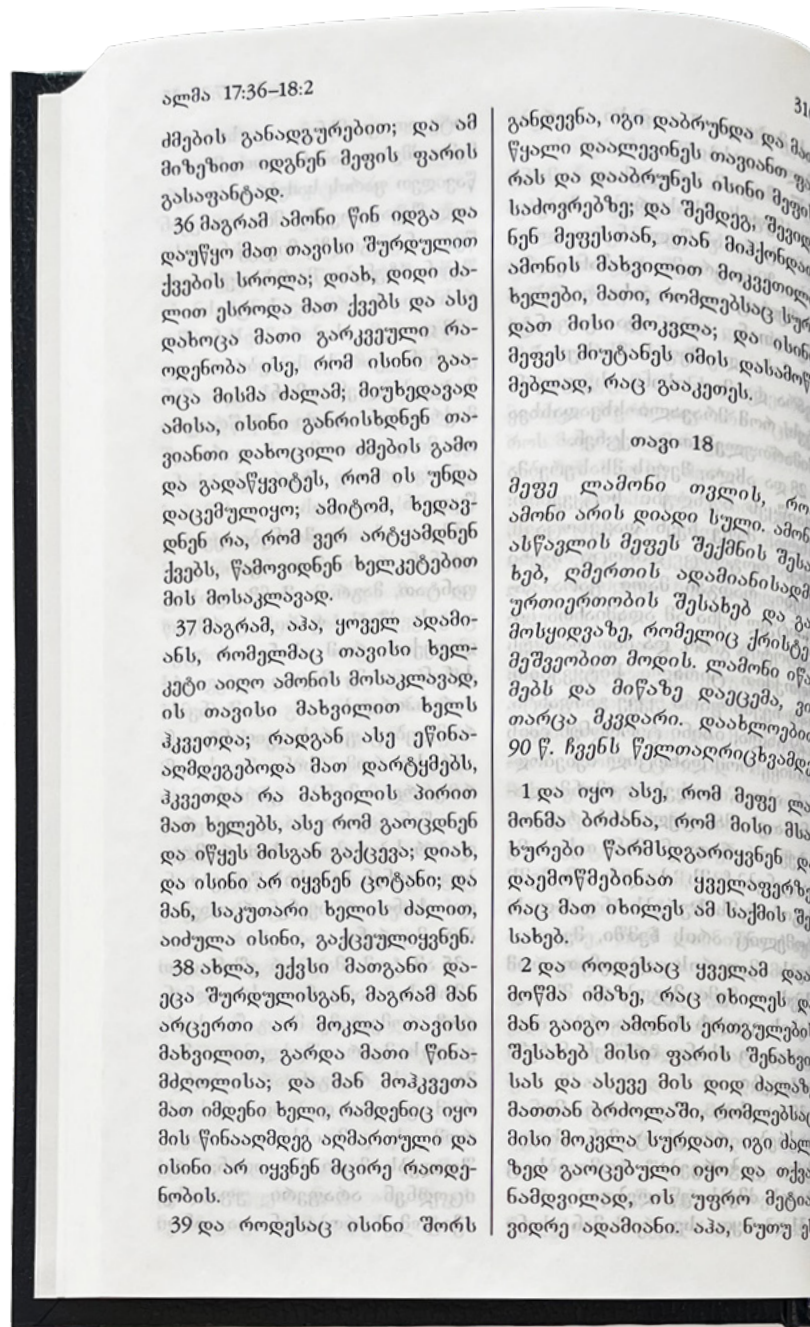 ალმა 17:36–18:2
ძმების განადგურებით; და ამ
მიზეზით იდგნენ მეფის ფარის
გასაფანტად.
36 მაგრამ ამონი წინ იდგა და
დაუწყო მათ თავისი შურდულით
ქვების სროლა; დიახ, დიდი ძა-
ლით ესროდა მათ ქვებს და ასე
დახოცა მათი გარკვეული რა-
ოდენობა ისე, რომ ისინი გაა-
ოცა მისმა ძალამ; მიუხედავად
ამისა, ისინი განრისხდნენ თა-
ვიანთი დახოცილი ძმების გამო
და გადაწყვიტეს, რომ ის უნდა
დაცემულიყო; ამიტომ, ხედავ-
დნენ რა, რომ ვერ არტყამდნენ
ქვებს, წამოვიდნენ ხელკეტებით
მის მოსაკლავად.
37 მაგრამ, აჰა, ყოველ ადამი-
ანს, რომელმაც თავისი ხელ-
კეტი აიღო ამონის მოსაკლავად,
ის თავისი მახვილით ხელს
ჰკვეთდა; რადგან ასე ეწინა-
აღმდეგებოდა მათ დარტყმებს,
ჰკვეთდა რა მახვილის პირით
მათ ხელებს, ასე რომ გაოცდნენ
და იწყეს მისგან გაქცევა; დიახ,
და ისინი არ იყვნენ ცოტანი; და
მან, საკუთარი ხელის ძალით,
აიძულა ისინი, გაქცეულიყვნენ.
38 ახლა, ექვსი მათგანი და-
ეცა შურდულისგან, მაგრამ მან
არცერთი არ მოკლა თავისი
მახვილით, გარდა მათი წინა-
მძღოლისა; და მან მოჰკვეთა
მათ იმდენი ხელი, რამდენიც იყო
მის წინააღმდეგ აღმართული და
ისინი არ იყვნენ მცირე რაოდე-
ნობის.
39 და როდესაც ისინი შორს
განდევნა, იგი დაბრუნდა და
წყალი დაალევინეს თავიანთ
რას და დააბრუნეს ისინი
საძოვრებზე; და შემდეგ,
ნენ მეფესთან, თან
ამონის მახვილით
ხელები, მათი, რომლებსაც
დათ მისი მოკვლა; და
მეფეს მიუტანეს იმის
მებლად, რაც გააკეთეს.
თავი 18
მეფე ლამონი თვლის,
ამონი არის დიადი სული.
ასწავლის მეფეს შექმნის
ხებ, ღმერთის
ურთიერთობის შესახებ და
მოსყიდვაზე, რომელიც
მეშვეობით მოდის. ლამონი
მებს და მიწაზე დაეცემა,
თარცა მკვდარი.
90 წ. ჩვენს
1 და იყო ასე, რომ მეფე ლა
მონმა ბრძანა, რომ მისი
ხურები წარმსდგარიყვნენ
დაემოწმებინათ
რაც მათ იხილეს ამ საქმის
სახებ.
2 და როდესაც ყველამ
მოწმა იმაზე, რაც იხილეს
მან გაიგო ამონის
შესახებ მისი ფარის
სას და ასევე მის დიდ
მათთან ბრძოლაში,
მისი მოკვლა სურდათ, იგი
ზედ გაოცებული იყო და
ნამდვილად, ის უფრო
ვიდრე ადამიანი. აჰა, ნუთუ